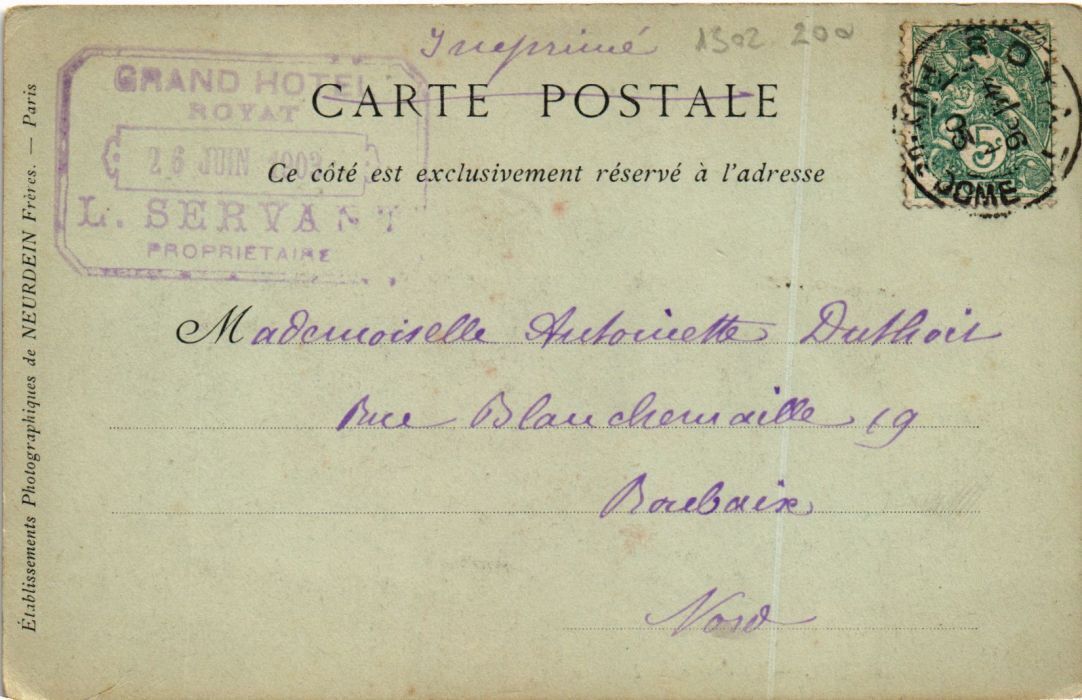 Imprimé
1302 200
GRAND HOTEL
ROYAT
26 JUIN 1903
L. SERVANT
PROPRIETAIRE
CARTE POSTALE
Ce côté est exclusivement réservé à l'adresse
5
PUY-DE-DOME
Mademoiselle Antoinette Duthoit
Rue Blanchemaille 19
Roubaix
Nord
Établissements Photographiques de NEURDEIN Frères. — Paris